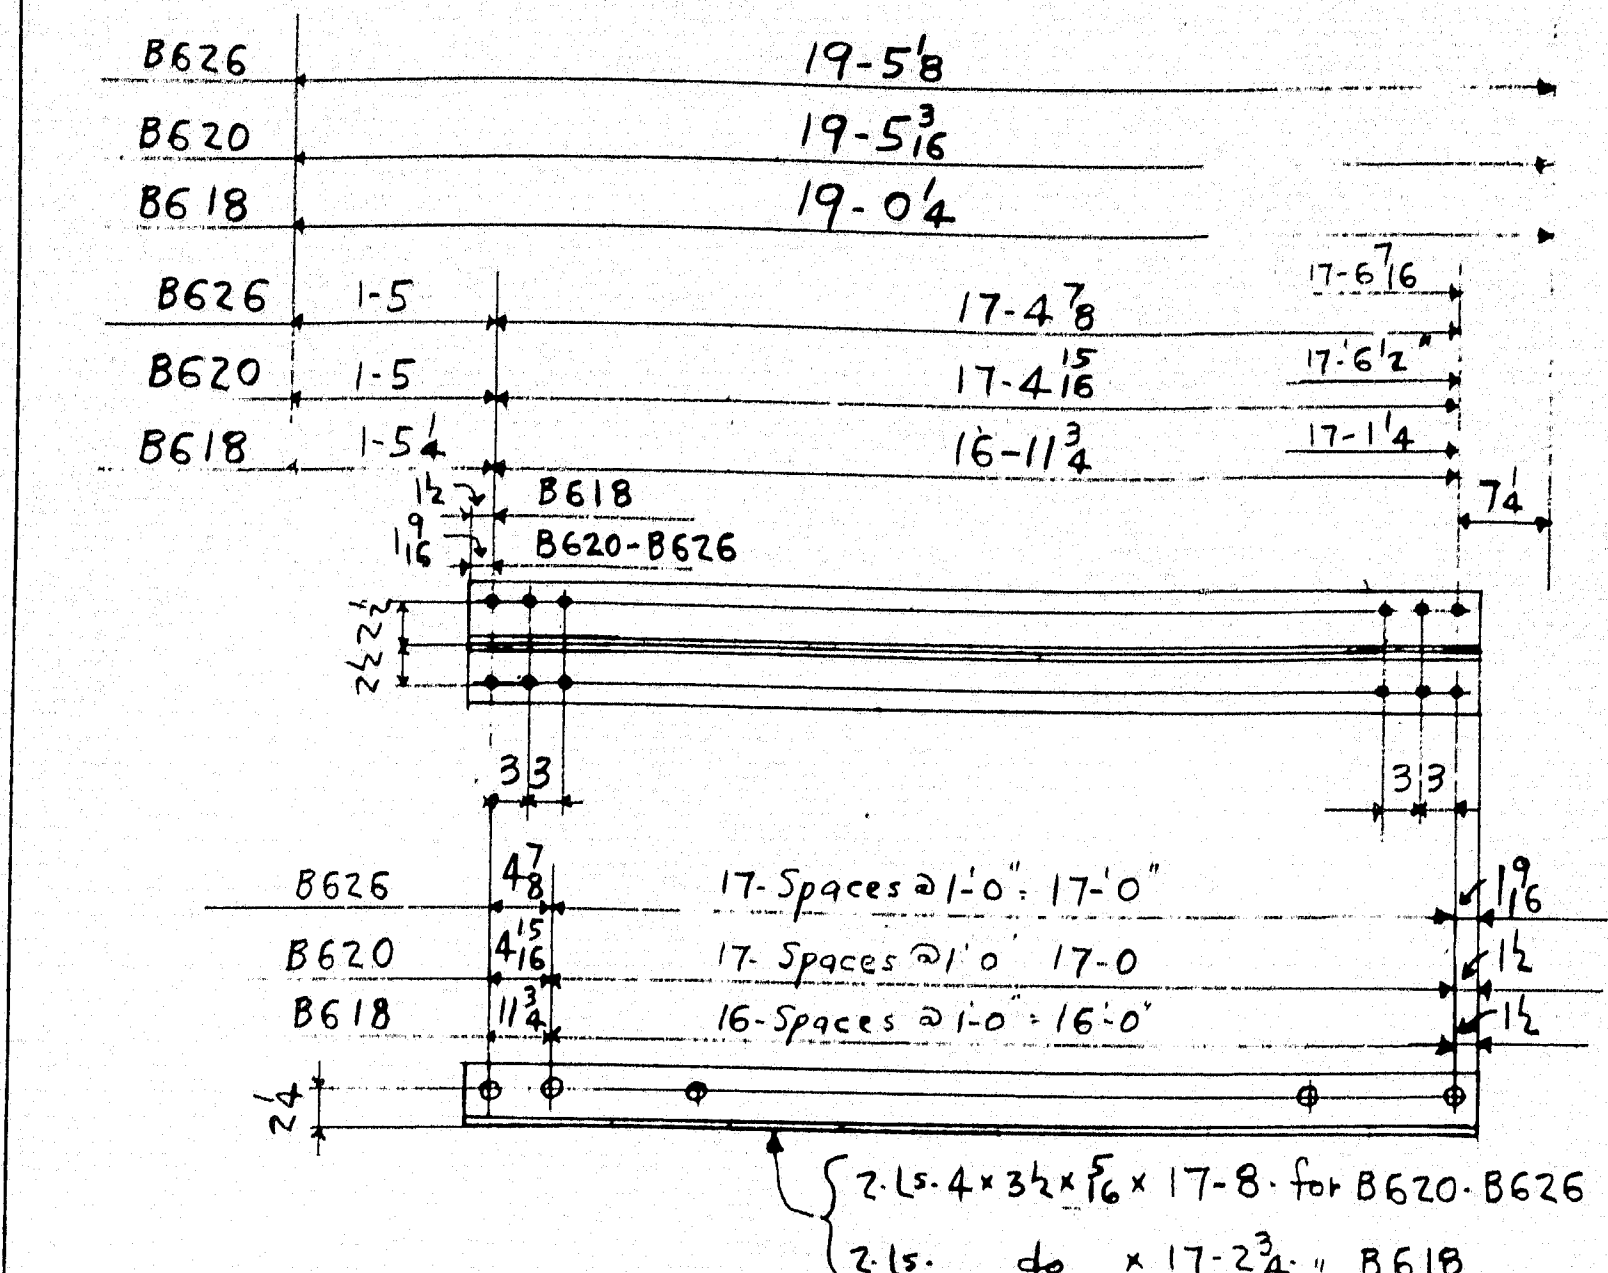 B626 19-5 1/8
B620 19-5 3/16
B618 19-0 1/4
17-6 7/16
B626 1-5 17-4 7/8
17-'6 1/2"
B620 1-5 17-4 15/16
17-1 1/4
B618 1-5 1/4 16-11 3/4
7 1/4
1 1/2 B618
1 9/16 B620-B626
2 1/2
2 1/2
3 3 3 3
B626 4 7/8 17-Spaces @ 1'-0" = 17-'0" 1 9/16
B620 4 15/16 17-Spaces @ 1'0 17-0 1 1/2
B618 11 3/4 16-Spaces @ 1'-0" = 16'-0" 1 1/2
2 1/4
2.Ls.4 x 3 1/2 x 5/16 x 17-8. for B620.B626
2.Ls. do x 17-2 3/4. " B618